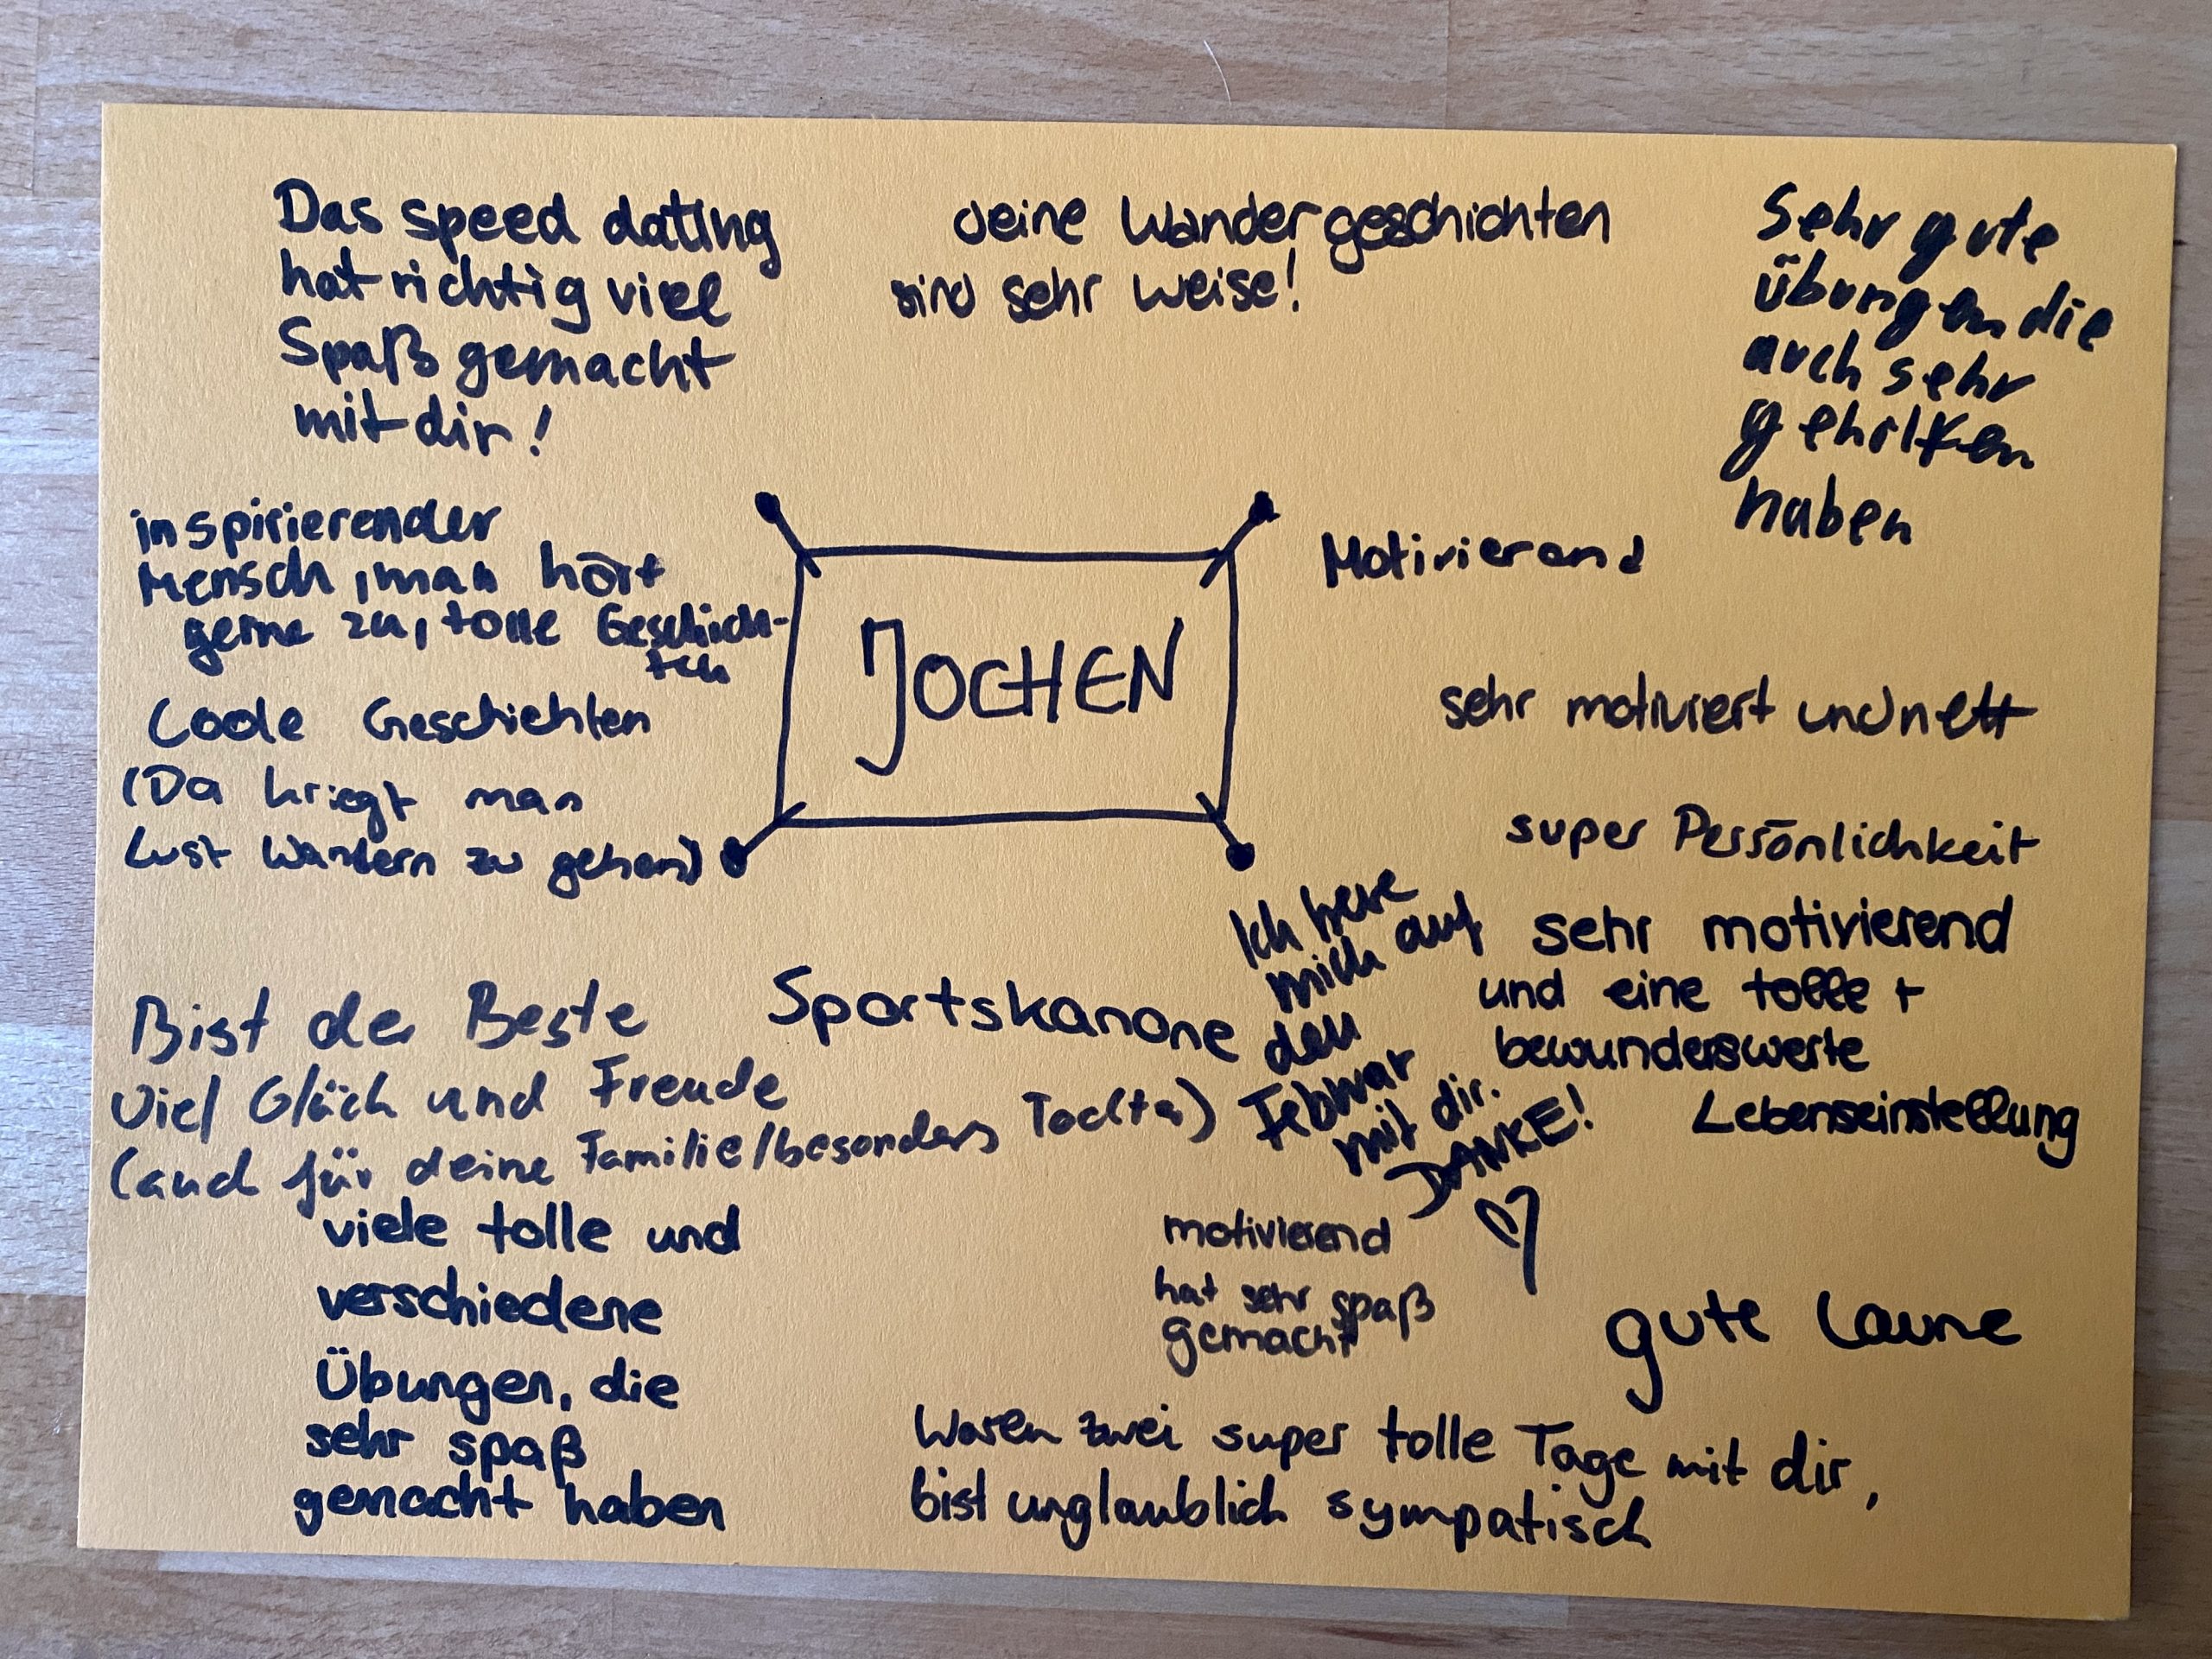 Das speed dating
hat richtig viel
Spaß gemacht
mit dir!
deine Wandergeschichten
sind sehr weise!
Sehr gute
übungen die
auch sehr
geholfen
haben
inspirierender
Mensch, man hört
gerne zu, tolle Geschich-
ten
Coole Geschichten
(Da kriegt man
Lust Wandern zu gehen)
JOCHEN
Motivierend
sehr motiviert und nett
super Persönlichkeit
sehr motivierend
und eine tolle +
bewunderswerte
Lebenseinstellung
Ich freue
mich auf
den
Februar
mit dir.
DANKE!
Sportskanone
Bist der Beste
Viel Glück und Freude
(auch für deine Familie/besonders Tochter)
viele tolle und
verschiedene
Übungen, die
sehr spaß
gemacht haben
motivierend
hat sehr spaß
gemacht
gute Laune
Waren zwei super tolle Tage mit dir,
bist unglaublich sympatisch